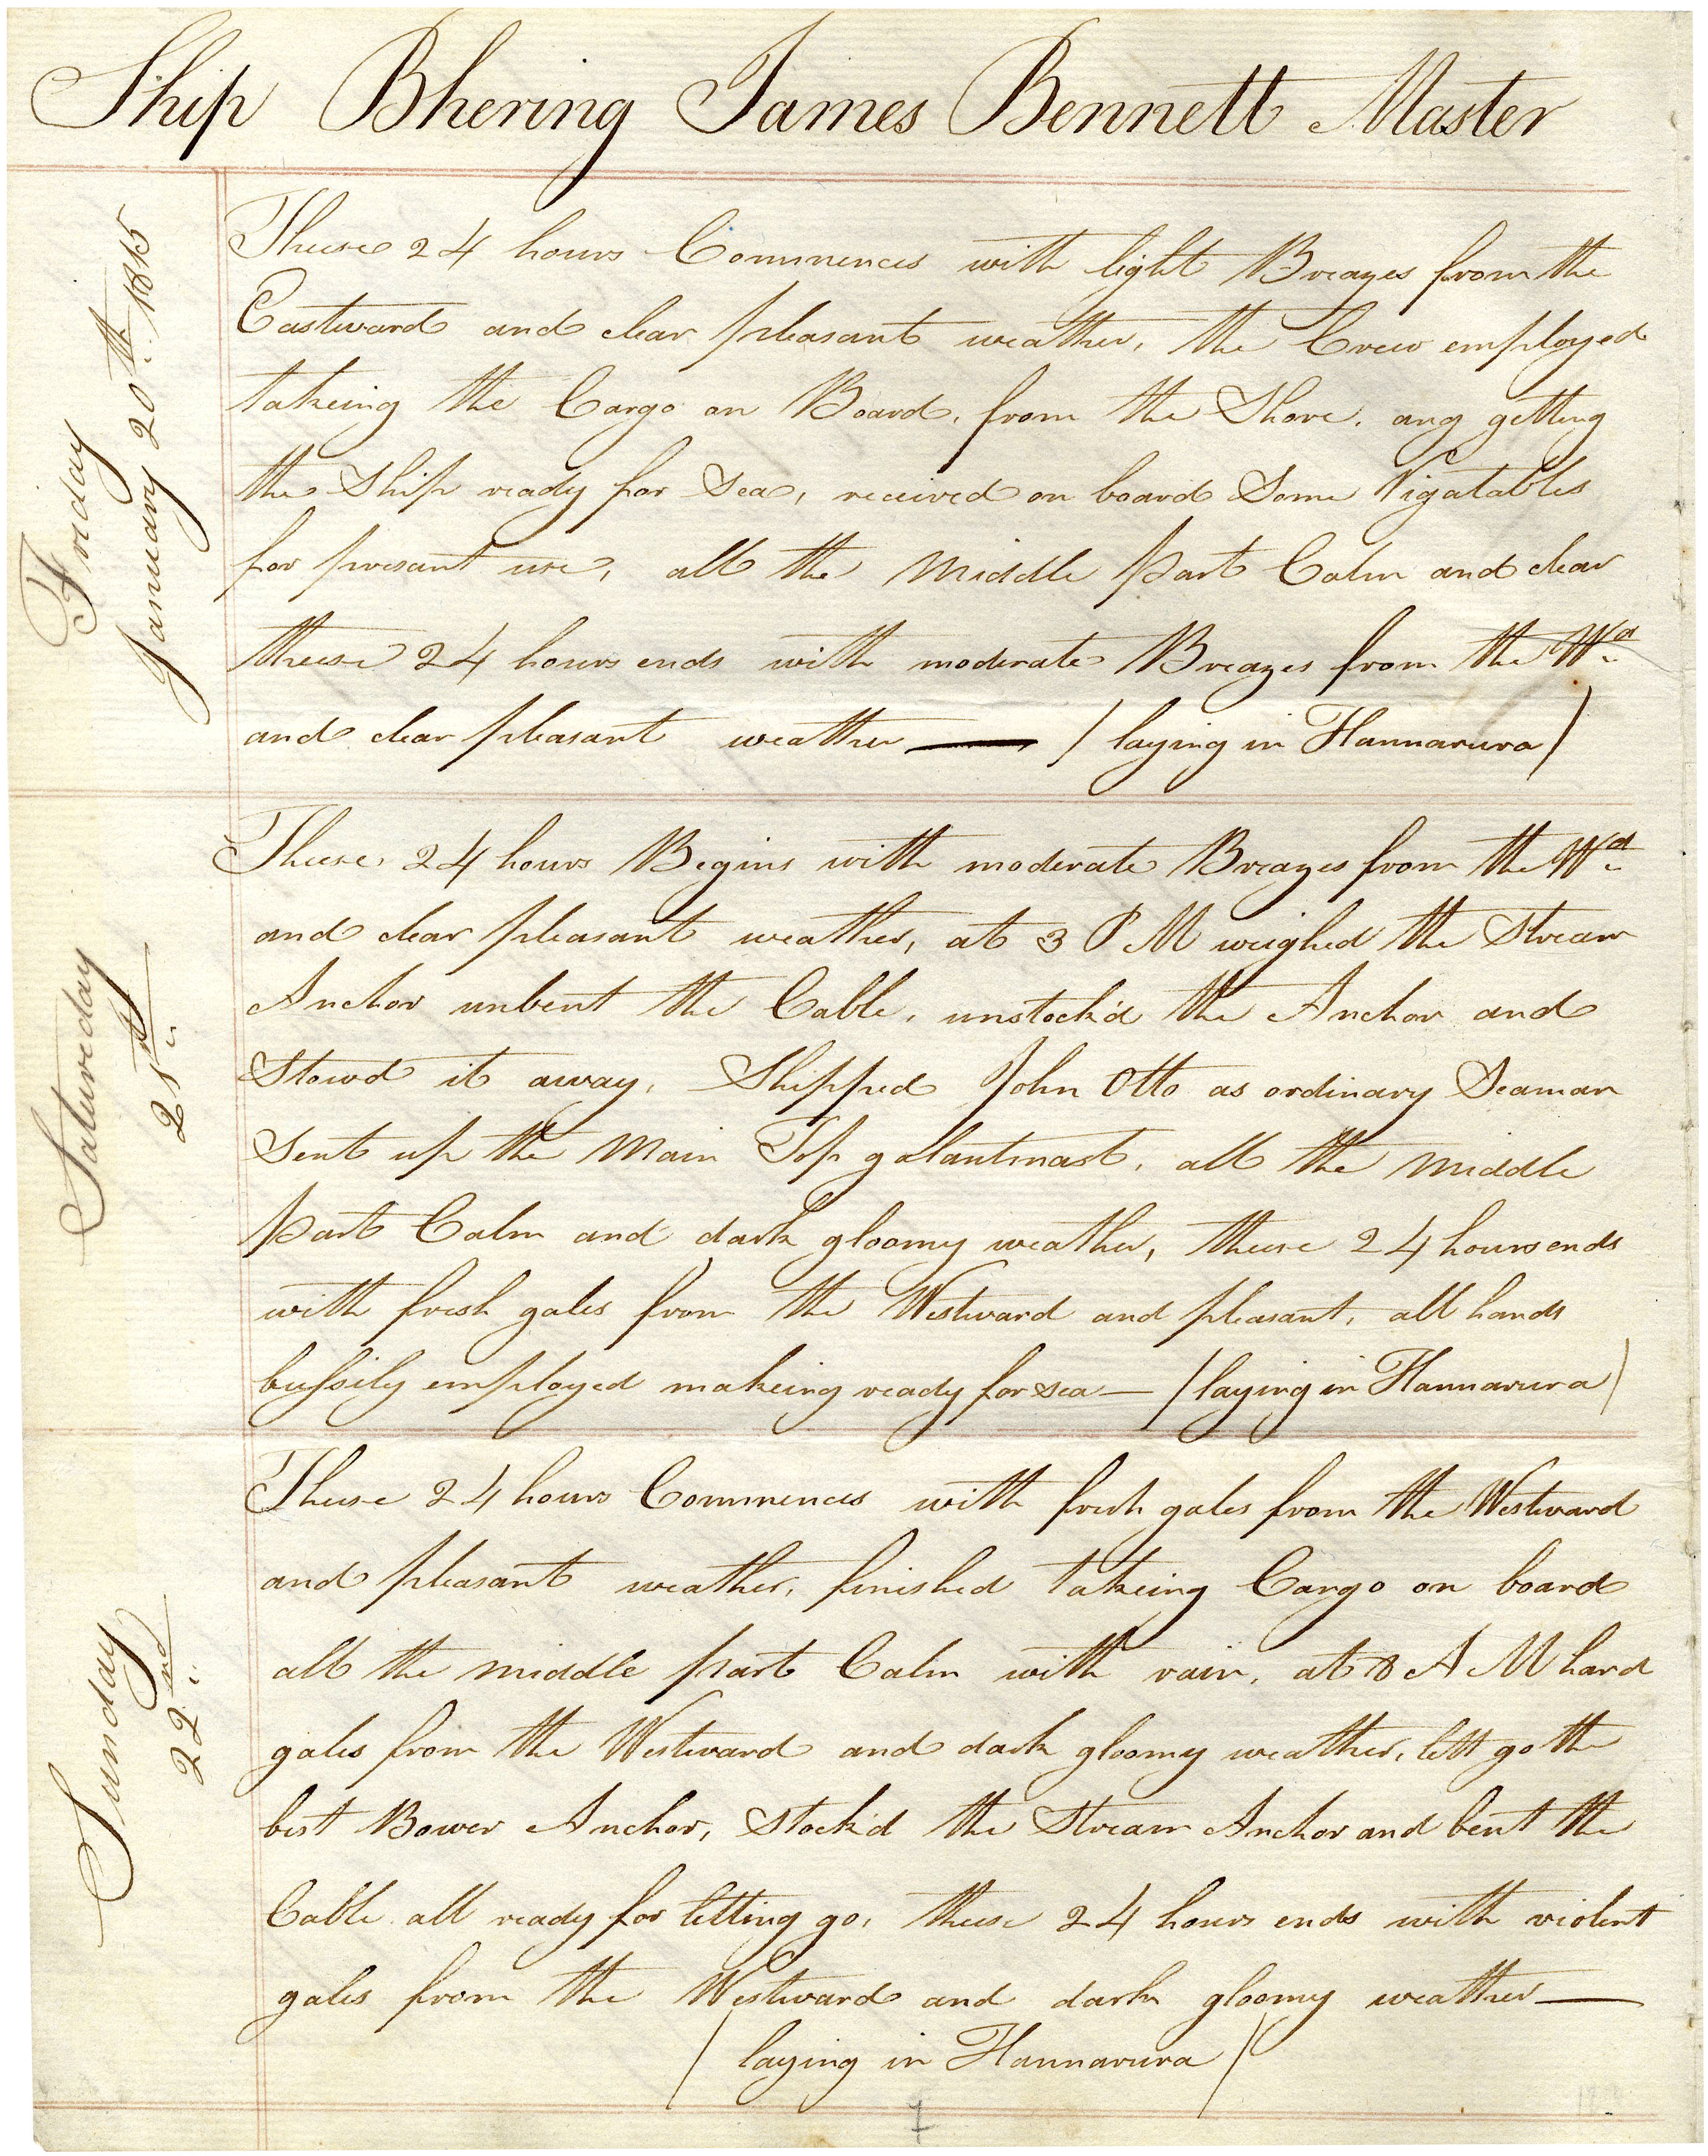 Ship Bhering James Bennett Master
Friday
January 20th 1815
Theese 24 hours Commences with light Breazes from the
Eastward and clear pleasant weather, the Crew employed
takeing the Cargo on Board, from the Shore. ang getting
the Ship ready for Sea, received on board Some Vigatables
for presant use, all the Middle part Calm and clear
theese 24 hours ends with moderate Breazes from the Wd
and clear pleasant weather — (laying in Hannarura)
Satureday
21st
Theese 24 hours Begins with moderate Breazes from the Wd
and clear pleasant weather, at 3 P M weighed the Stream
Anchor unbent the Cable, unstock'd the Anchor and
Stowd it away, Shipped John Otto as ordinary Seaman
Sent up the Main Top galantmast, all the middle
part Calm and dark gloomy weather, theese 24 hours ends
with fresh gales from the Westward and pleasant, all hands
bussily employed makeing ready for sea — (laying in Hannarura)
Sunday
22nd
Theese 24 hours Commences with fresh gales from the Westward
and pleasant weather, finished takeing Cargo on board
all the middle part Calm with rain, at 8 A M hard
gales from the Westward and dark gloomy weather, lett go the
best Bower Anchor, Stock'd the Stream Anchor and bent the
Cable all ready for letting go, theese 24 hours ends with violent
gales from the Westward and dark gloomy weather —
(laying in Hannarura)